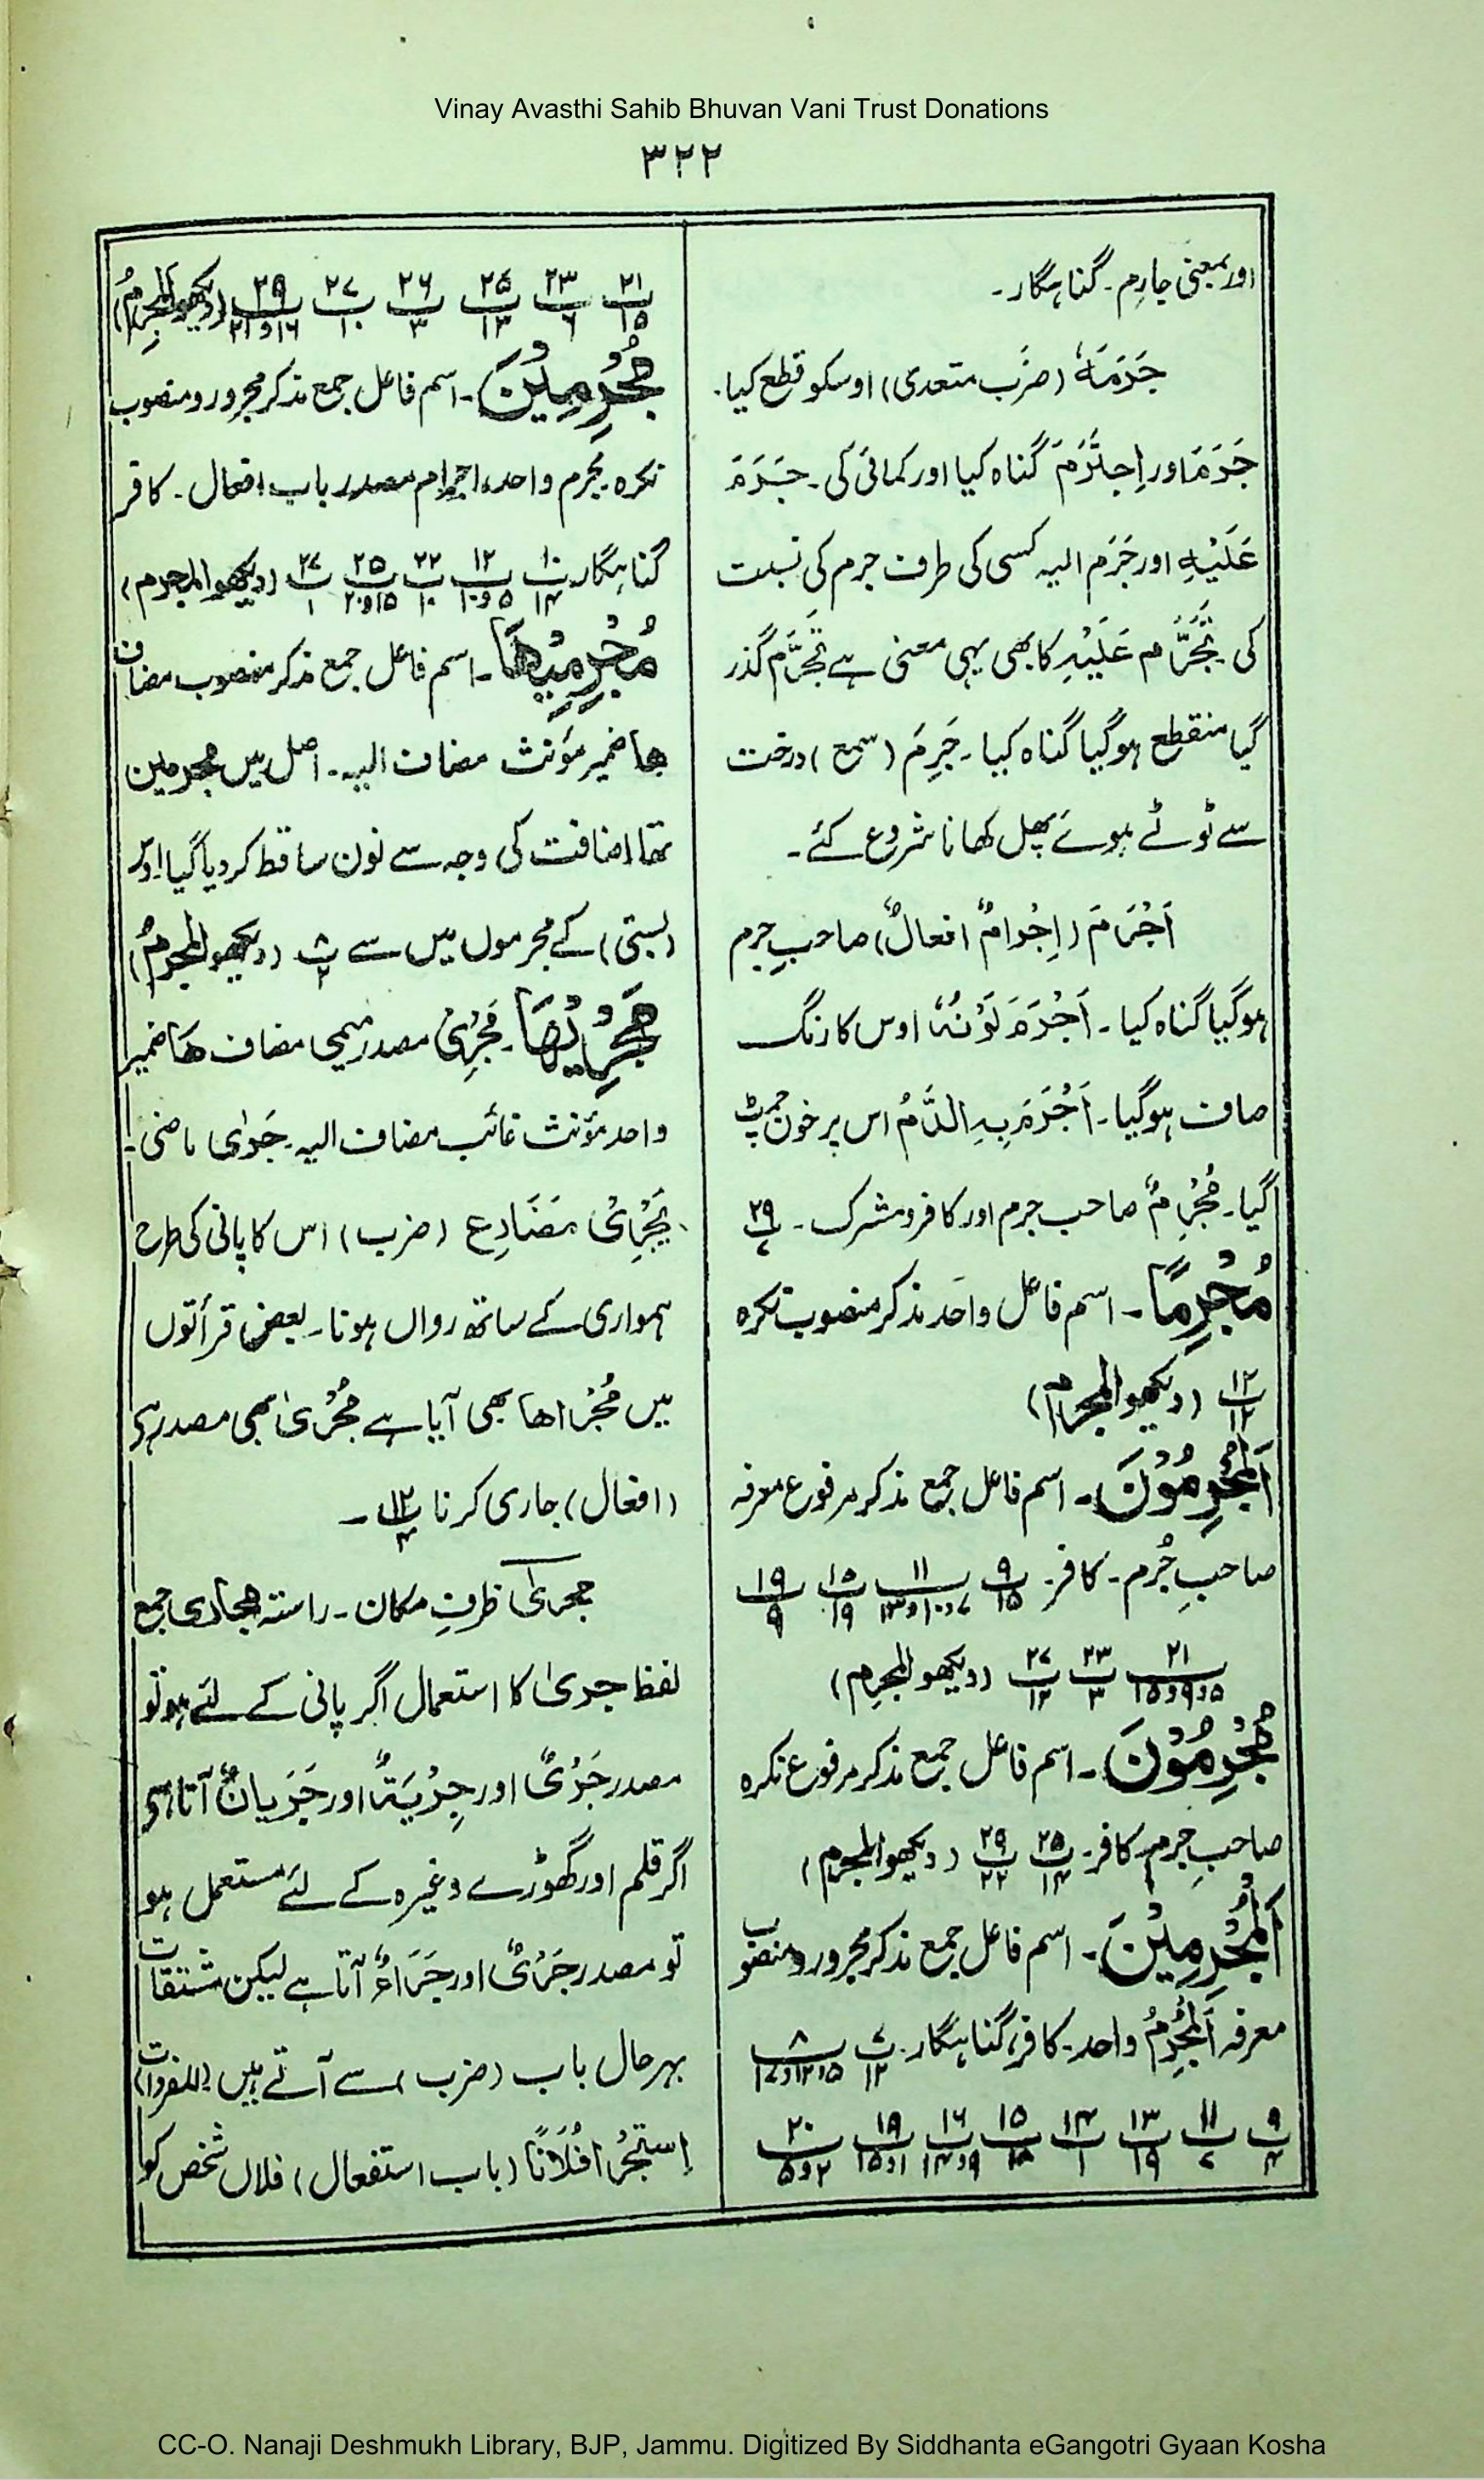 Vinay Avasthi Sahib Bhuvan Vani Trust Donations
۳۲۲
اور بمعنی جارِم۔ گناہگار۔
جَرَمَہٗ (ضَرَب متعدی) اوسکو قطع کیا۔
جَرَمَ اور اِجتَرَمَ گناہ کیا اور کمائی کی۔ جَرَمَ
عَلَیْہِ اور جَرَم الیہ کسی کی طرف جرم کی نسبت
کی تَجَرَّم عَلَیْہِ کا بھی یہی معنی ہے تَجَرَّم گذر
گیا منقطع ہوگیا گناہ کیا۔ جَرِمَ (سمع) درخت
سے ٹوٹے ہوئے پھل کھانا شروع کئے۔
اَجْرَمَ (اِجْرامٌ افعالٌ) صاحبِ جرم
ہوگیا گناہ کیا۔ اَجْرَمَ لَوْنُہٗ اوس کا رنگ
صاف ہوگیا۔ اَجْرَمَ بِہِ الدَّمُ اس پر خون چمٹ
گیا۔ مُجْرِمٌ صاحب جرم اور کافر و مشرک۔ ۲۹/۷
مُجْرِمًا۔ اسم فاعل واحد مذکر منصوب نکرہ
۱۲/۱۲ (دیکھو المجرم)
اَلْمُجْرِمُوْنَ۔ اسم فاعل جمع مذکر مرفوع معرفہ
صاحبِ جُرم۔ کافر۔ ۹/۱۵ ۱۱/۷و۱۰و۱۳ ۱۵/۱۹ ۱۹/۹
۲۱/۵و۹و۱۵ ۲۳/۳ ۲۷/۱۲ (دیکھو المجرِم)
مُجْرِمُوْنَ۔ اسم فاعل جمع مذکر مرفوع نکرہ
صاحبِ جرم کافر۔ ۲۵/۱۴ ۲۹/۲۲ (دیکھو المجرم)
اَلْمُجْرِمِیْنَ۔ اسم فاعل جمع مذکر مجرور و منصوب
معرفہ اَلْمُجْرِمُ واحد۔ کافر، گناہگار۔ ۷/۱۲ ۸/۵و۱۲و۱۷
۹/۴ ۱۱/۷ ۱۳/۱۹ ۱۴/۱ ۱۵/۱۸ ۱۶/۹و۱۴ ۱۹/۱و۱۵ ۲۰/۲و۵
۲۱/۱۵ ۲۳/۶ ۲۵/۱۳ ۲۶/۳ ۲۷/۱۰ ۲۹/۱۶و۲۱ (دیکھو المجرِمُ)
مُجْرِمِیْنَ۔ اسم فاعل جمع مذکر مجرور و منصوب
نکرہ مجرم واحد، اجرام مصدر باب افعال۔ کافر
گناہگار ۱۰/۱۴ ۱۲/۵و۱۰ ۲۲/۱۰ ۲۵/۱۵و۲۰ ۲۷/۱ (دیکھو المجرم)
مُجْرِمِیْھَا۔ اسم فاعل جمع مذکر منصوب مضاف
ھا ضمیر مؤنث مضاف الیہ۔ اصل میں مجرمین
تھا اضافت کی وجہ سے نون ساقط کر دیا گیا اور
(بستی) کے مجرموں میں سے ۸/۲ (دیکھو المجرمُ)
مَجْرِیٰھَا۔ مَجْرِیٰ مصدر میمی مضاف ھَا ضمیر
واحد مؤنث غائب مضاف الیہ۔ جَرٰی ماضی۔
یَجْرِیْ مَضَارِع (ضرب) اس کا پانی کی طرح
ہمواری کے ساتھ رواں ہونا۔ بعض قرأتوں
میں مُجْراھا بھی آیا ہے مُجْریٰ بھی مصدر ہے
(افعال) جاری کرنا ۱۲/۴۔
مجریٰ ظرفِ مکان۔ راستہ مجاری جمع
لفظ جریٰ کا استعمال اگر پانی کے لئے ہو تو
مصدر جَرْیٌ اور جِرْیَۃٌ اور جَرَیانٌ آتا ہے
اگر قلم اور گھوڑے وغیرہ کے لئے مستعمل ہو
تو مصدر جَرْیٌ اور جَرَاءٌ آتا ہے لیکن مشتقات
بہرحال باب (ضرب) سے آتے ہیں (المفردات)
اِستَجْرا فُلَانًا (باب استفعال) فلاں شخص کو
CC-O. Nanaji Deshmukh Library, BJP, Jammu. Digitized By Siddhanta eGangotri Gyaan Kosha